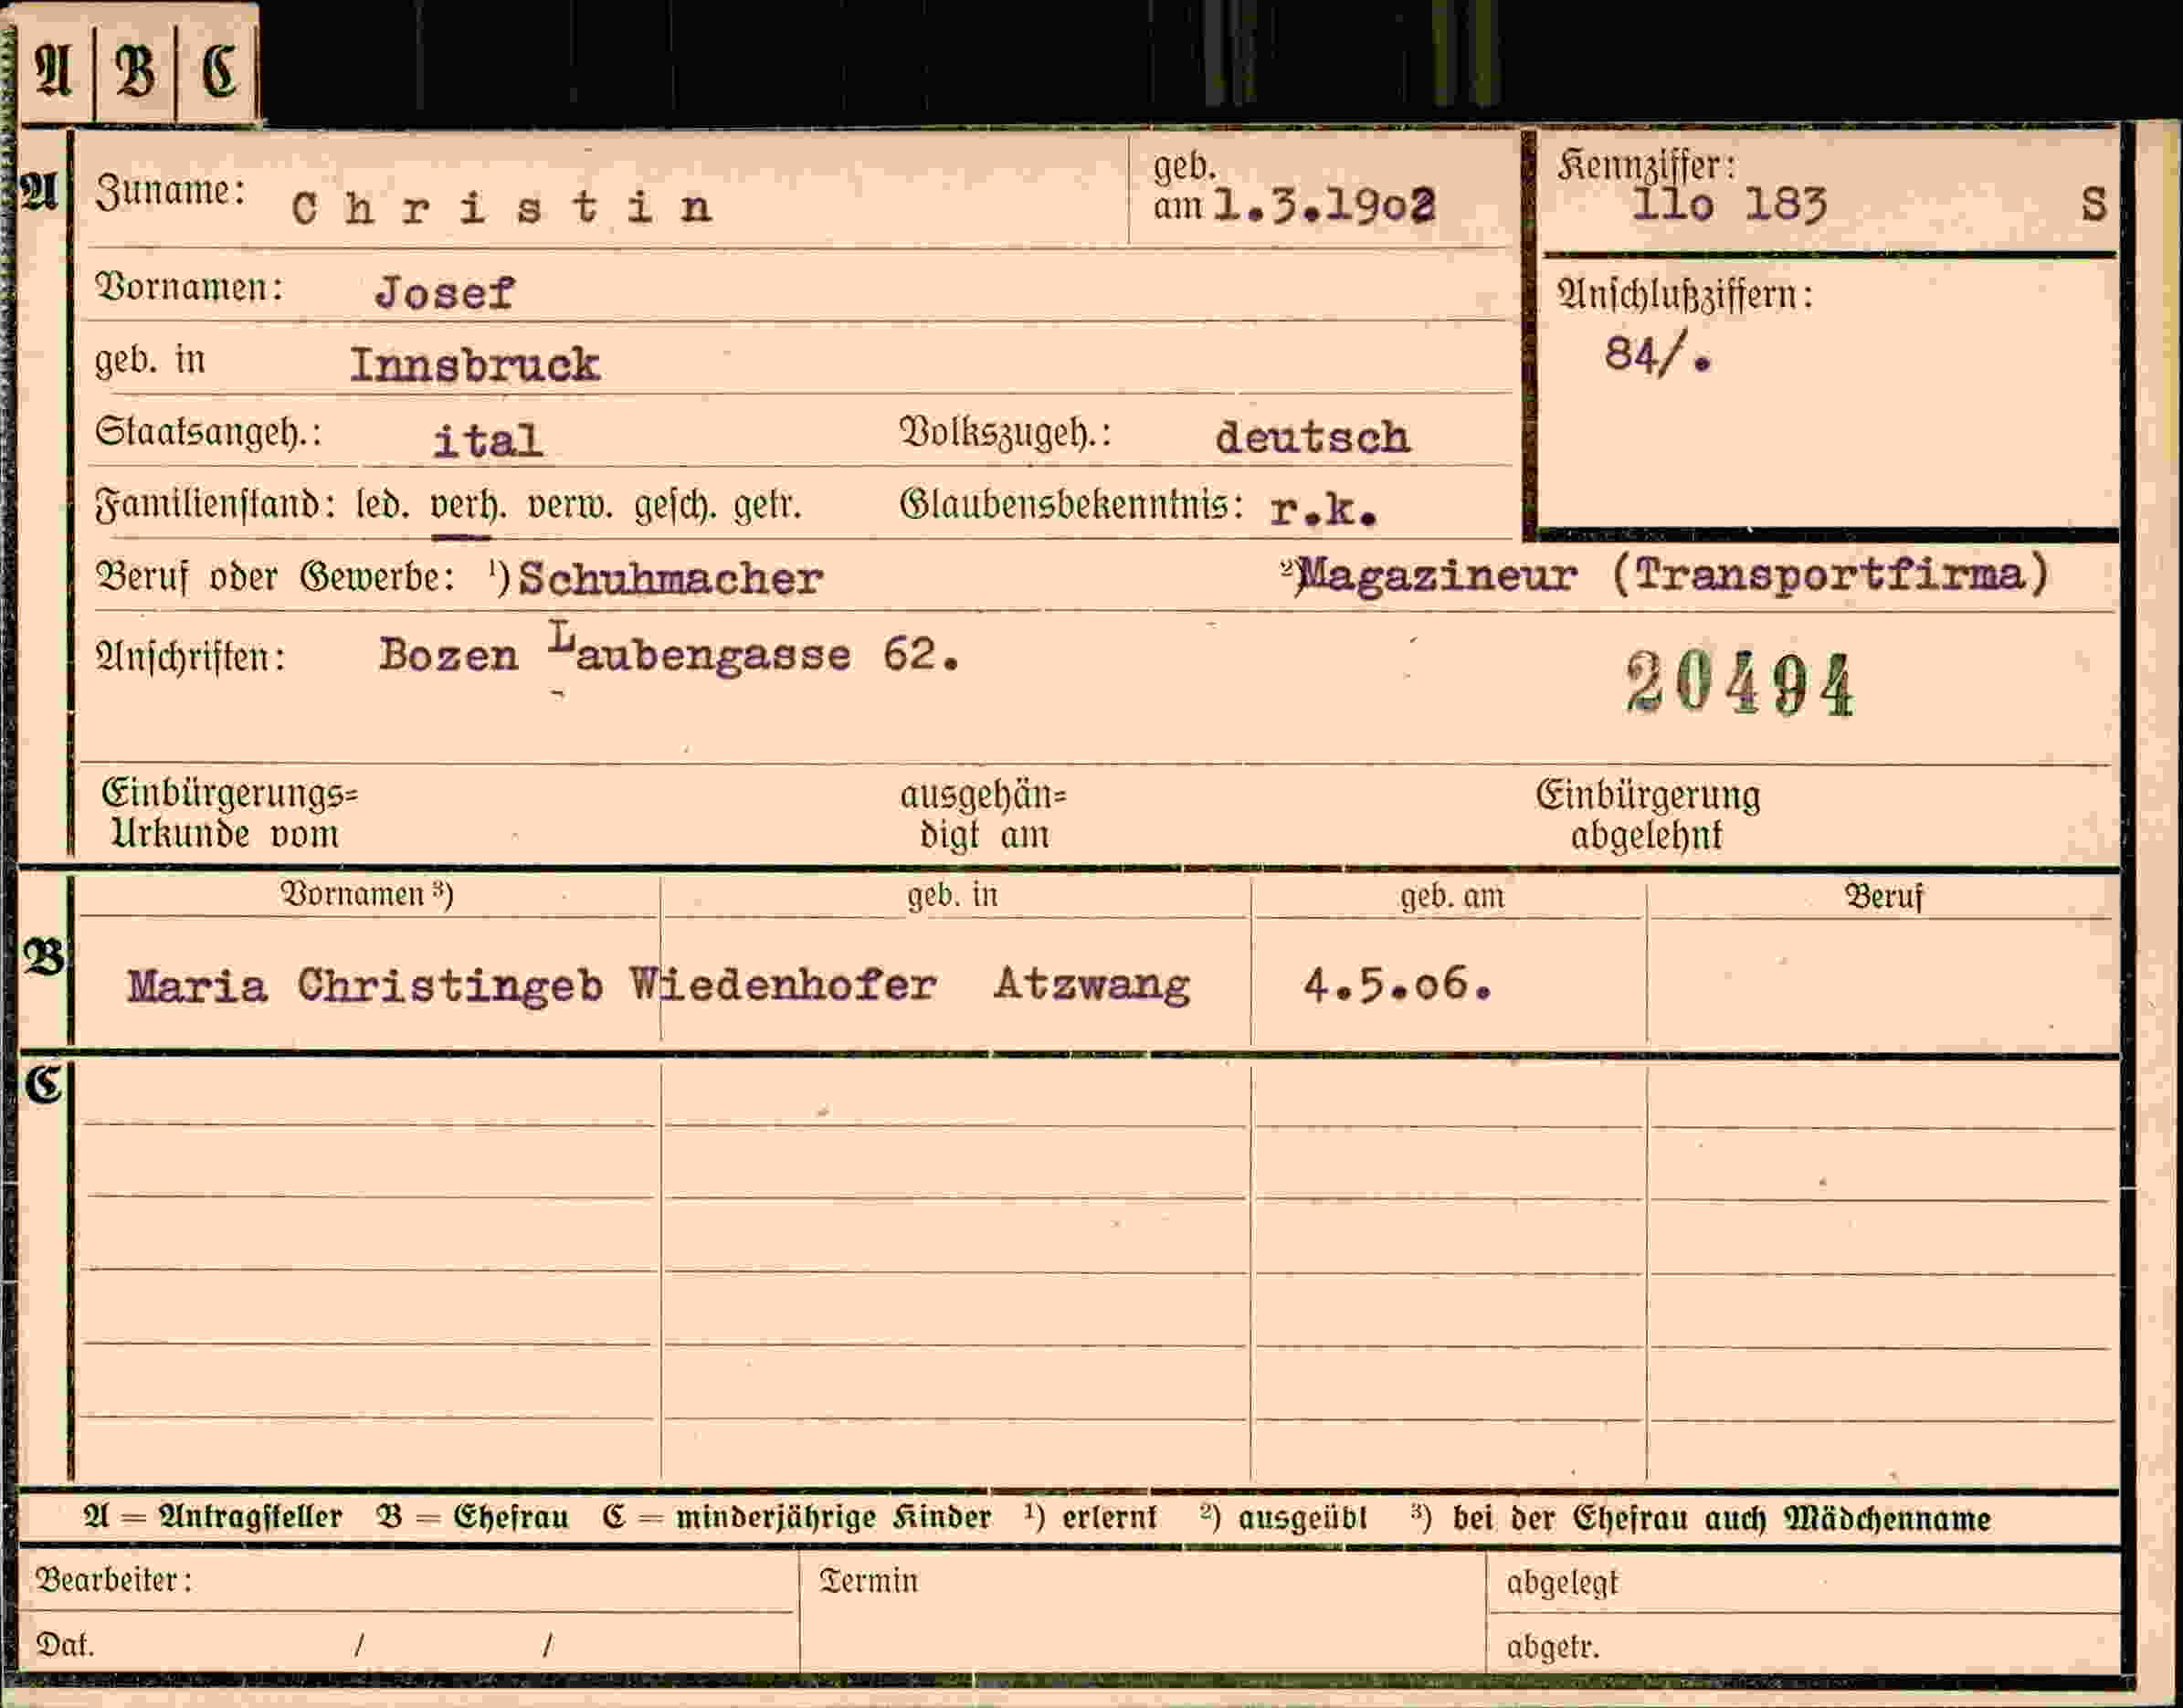 A | B | C
A Zuname: Christin geb. am 1.3.1902 Kennziffer: 11o 183 S
Vornamen: Josef Anschlußziffern:
84/.
geb. in Innsbruck
Staatsangeh.: ital Volkszugeh.: deutsch
Familienstand: led. verh. verw. gesch. getr. Glaubensbekenntnis: r.k.
Beruf oder Gewerbe: ¹) Schuhmacher ²) Magazineur (Transportfirma)
Anschriften: Bozen Laubengasse 62.
20494
Einbürgerungs= ausgehän= Einbürgerung
Urkunde vom digt am abgelehnt
Vornamen ³) geb. in geb. am Beruf
B Maria Christingeb Wiedenhofer Atzwang 4.5.o6.
C
A = Antragsteller B = Ehefrau C = minderjährige Kinder ¹) erlernt ²) ausgeübt ³) bei der Ehefrau auch Mädchenname
Bearbeiter: Termin abgelegt
Dat. / / abgetr.